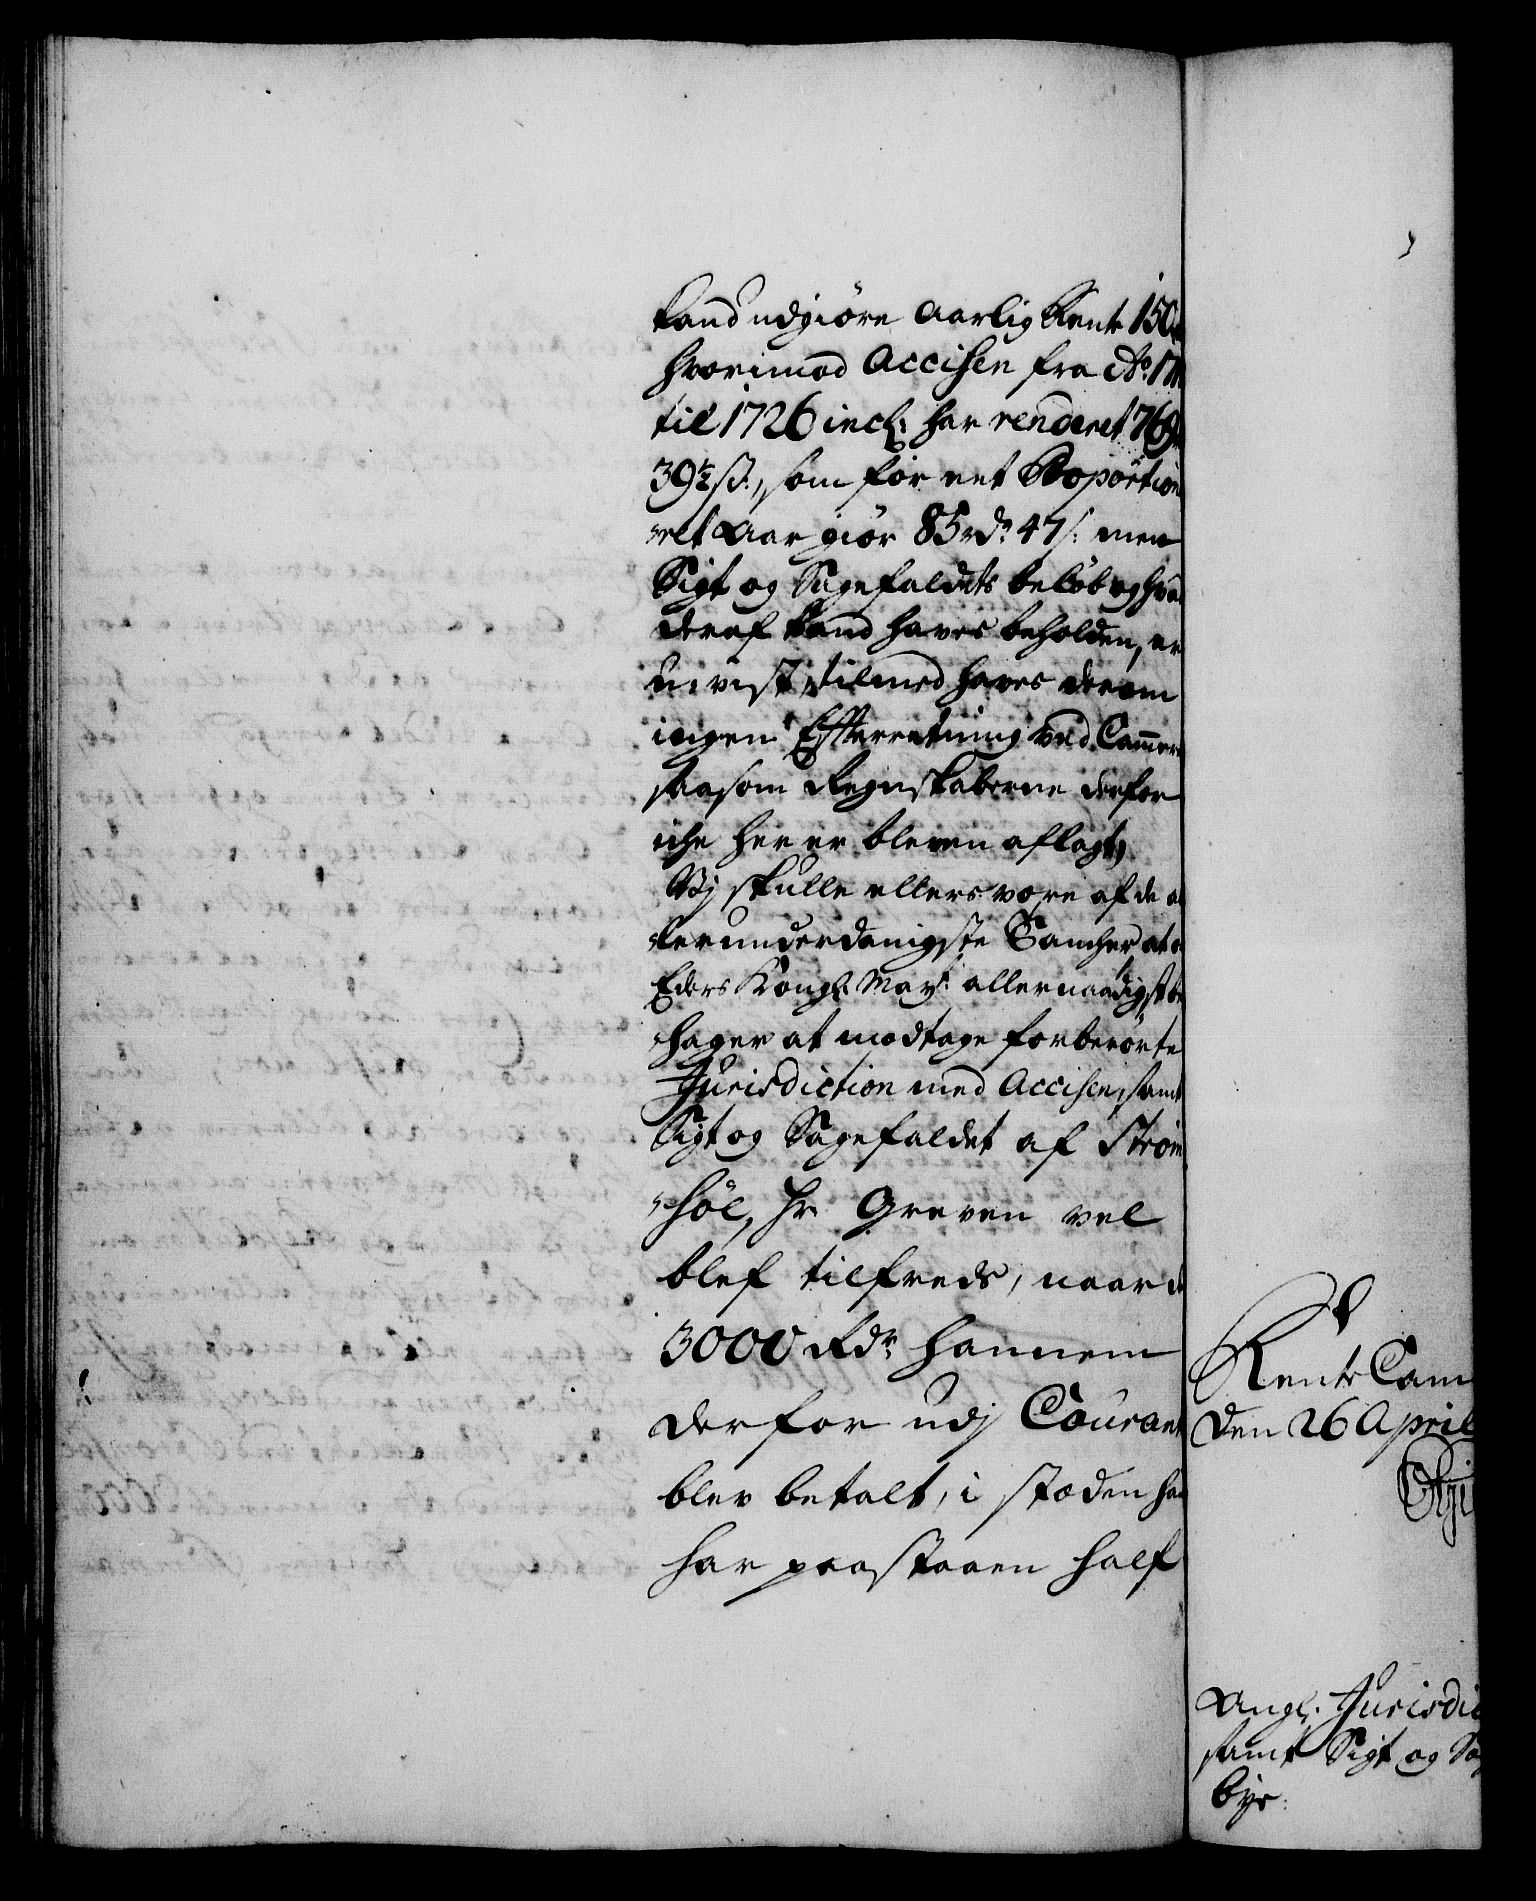 kand udgiøre Aarlig Rente 150
hvorimod Accisen fra Ao. 17
til 1726 incl: har renderet 769
39½ s., som for eet Proportion
eet Aar giør 85 rdr 47 s: men
Sigt og Sagefaldets beløb og hva
deraf kand haves beholden, er
u-vist, tilmed haves derom
ingen Efterretning ved Cammer
saasom Regnskaberne derfor
iche her er bleven aflagt,
Vij skulle ellers være af de al
lerunderdanigste Tancher, at om
Eders Kongl. May: allernaadigst be
hager at modtage forberørte
Jurisdiction med Accisen, samt
Sigt og Sagefaldet af Strøm
søe, Hr Greven vel
blef tilfreds, naar de
3000 Rdr hannem
derfor udj Courant
blev betalt, i stæden han
har paastaaen half
Rente Cam
den 26 April
Angl: Jurisdic
samt Sigt og Sag
bye: